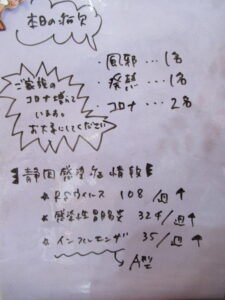 本日の病欠
・風邪…1名
・発熱…1名
・コロナ…2名
ご家族の
コロナ増えて
います。
お大事にしてください
静岡感染症情報
☆RSウィルス 108/週↑
☆感染性胃腸炎 324/週↑
☆インフルエンザ 35/週↑
A型